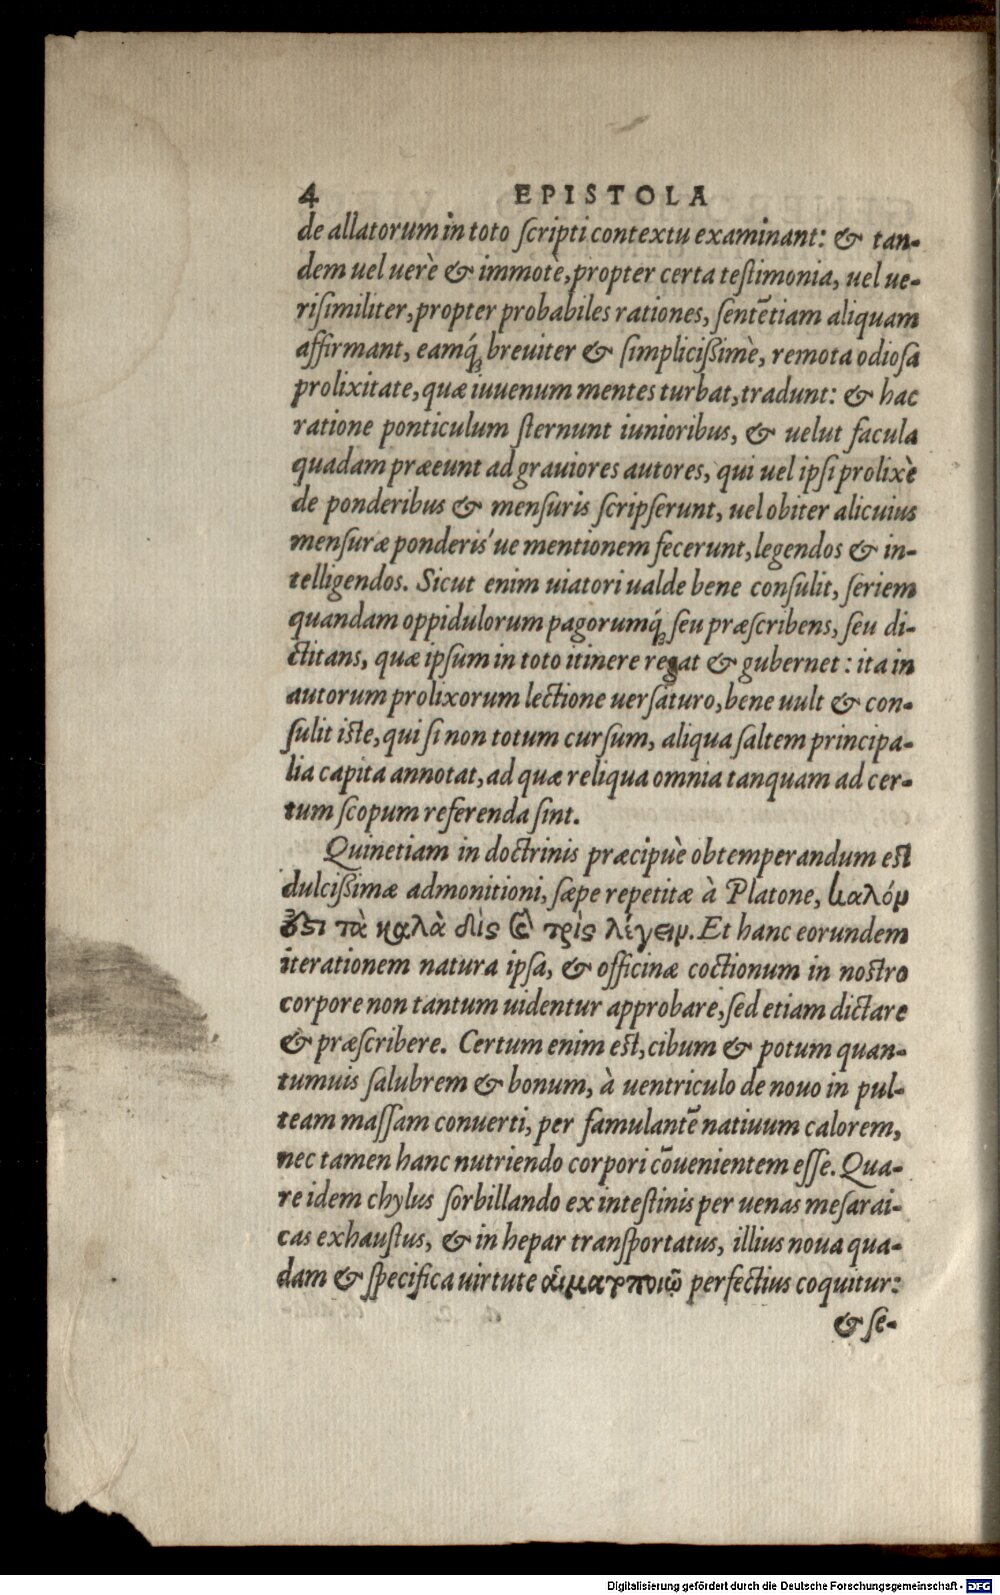 4 EPISTOLA
de allatorum in toto ſcripti contextu examinant: & tan-
dem uel uerè & immotè, propter certa teſtimonia, uel ue-
riſimiliter, propter probabiles rationes, ſentētiam aliquam
affirmant, eamq́; breuiter & ſimpliciſsimè, remota odioſa
prolixitate, quæ iuuenum mentes turbat, tradunt: & hac
ratione ponticulum ſternunt iunioribus, & uelut facula
quadam præeunt ad grauiores autores, qui uel ipſi prolixè
de ponderibus & menſuris ſcripſerunt, uel obiter alicuius
menſuræ ponderis'ue mentionem fecerunt, legendos & in-
telligendos. Sicut enim uiatori ualde bene conſulit, ſeriem
quandam oppidulorum pagorumq́; ſeu præſcribens, ſeu di-
ctitans, quæ ipſum in toto itinere regat & gubernet: ita in
autorum prolixorum lectione uerſaturo, bene uult & con-
ſulit iſte, qui ſi non totum curſum, aliqua ſaltem principa-
lia capita annotat, ad quæ reliqua omnia tanquam ad cer-
tum ſcopum referenda ſint.
Quinetiam in doctrinis præcipuè obtemperandum eſt
dulciſsimæ admonitioni, ſæpe repetitæ à Platone, καλόν
ἐϛι τὰ καλὰ δὶς ϗ̀ τρὶς λέγειν. Et hanc eorundem
iterationem natura ipſa, & officinæ coctionum in noſtro
corpore non tantum uidentur approbare, ſed etiam dictare
& præſcribere. Certum enim eſt, cibum & potum quan-
tumuis ſalubrem & bonum, à uentriculo de nouo in pul-
team maſſam conuerti, per famulantē natiuum calorem,
nec tamen hanc nutriendo corpori cōuenientem eſſe. Qua-
re idem chylus ſorbillando ex inteſtinis per uenas meſarai-
cas exhauſtus, & in hepar tranſportatus, illius noua qua-
dam & ſpecifica uirtute perfectius coquitur:
& ſe-
Digitalisierung gefördert durch die Deutsche Forschungsgemeinschaft - DFG